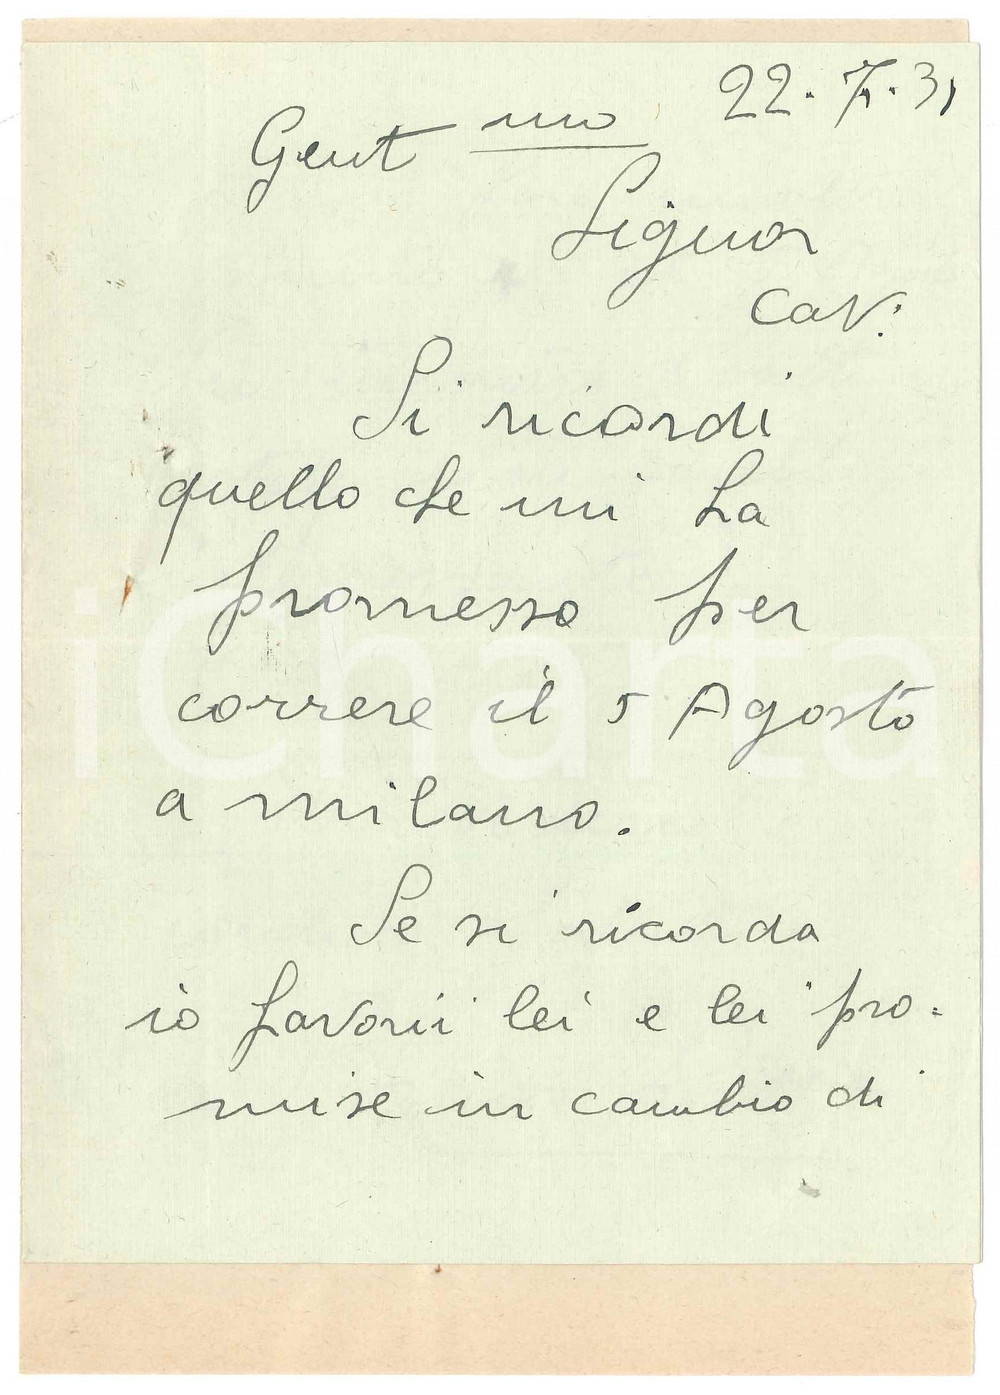 22.7.31
Gent mo
Signor
Cav:
Si ricordi
quello che mi ha
promesso per
correre il 5 Agosto
a milano.
Se si ricorda
io favorii lei e lei pro=
mise in cambio di
iCharta